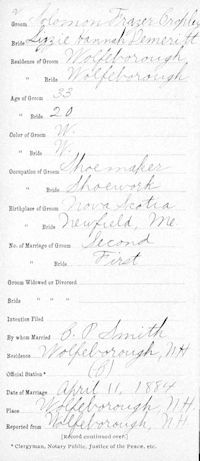 Groom Solemon Frazer Cropley
Bride Lizzie Hannah Demeritt
Residence of Groom Wolfeborough
" " Bride Wolfeborough
Age of Groom 33
" " Bride 20
Color of Groom W.
" " Bride W.
Occupation of Groom Shoemaker
" " Bride Shoework
Birthplace of Groom Nova Scotia
" " Bride Newfield, Me.
No. of Marriage of Groom Second
" " " Bride First
Groom Widowed or Divorced
Bride " " "
Intention Filed
By whom Married B. P. Smith
Residence Wolfeborough, N.H.
Official Station *
Date of Marriage April 11, 1884
Place Wolfeborough, N.H.
Reported from Wolfeborough, N.H.
[Record continued over.]
* Clergyman, Notary Public, Justice of the Peace, etc.